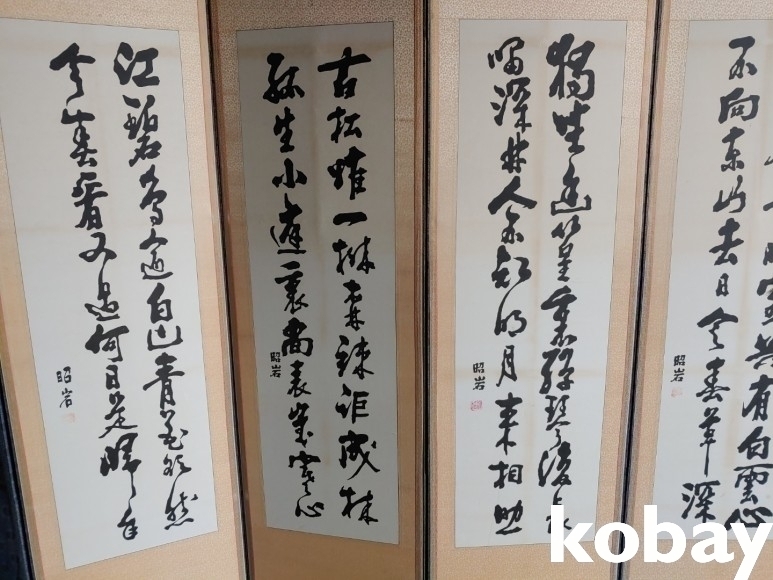 共有白雲心
不向東山去日令春草深
獨坐幽篁裏彈琴復長
嘯深林人不知明月來相照
昭岩
古松雖一株森疎詎成林
孤生小庭裏尚表歲寒心
昭岩
江碧鳥逾白山青花欲然
今春看又過何日是歸年
昭岩
昭岩
kobay